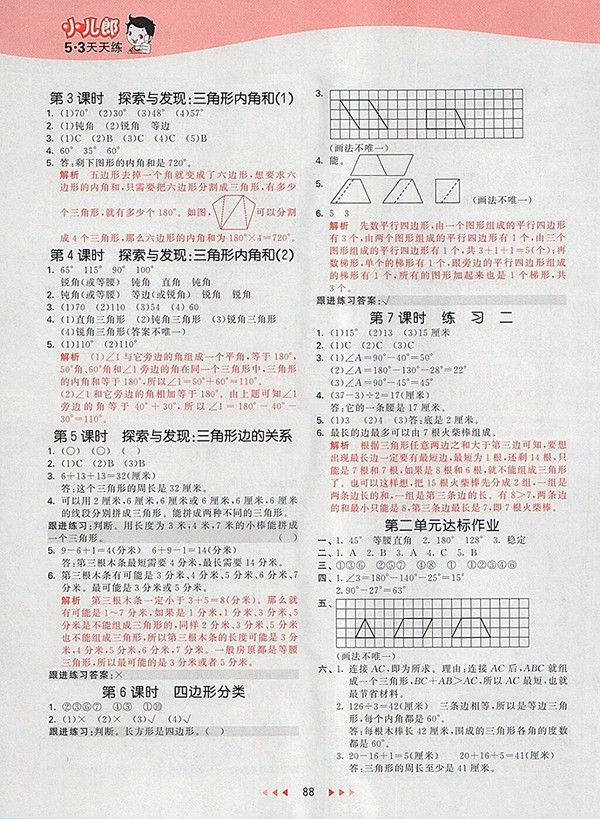 小儿郎
5·3天天练
第3课时 探索与发现:三角形内角和(1)
1. (1)70° (2)30° (3)48° (4)57°
2. (1)钝角 (2)锐角 等边
3. (1)C (2)B (3)C (4)C (5)B
4. 60° 35° 60°
5. 答:剩下图形的内角和是720°。
解析 五边形去掉一个角就变成了六边形,想要求六
边形的内角和,只需要把六边形分割成三角形,有多少
个三角形,就有多少个180°。如图,
可以分割
成4个三角形,那么六边形的内角和为180°×4=720°。
第4课时 探索与发现:三角形内角和(2)
1. 65° 115° 90° 100°
锐角(或等腰) 钝角 直角 钝角
2. 钝角(或等腰) 等边(或锐角) 锐角 锐角
3. (1)70 (2)110 (3)54 (4)60
4. (1)直角三角形 (2)钝角三角形 (3)锐角三角形
(4)锐角三角形(答案不唯一)
5. (1)110° (2)110°
解析 (1)∠1与它旁边的角组成一个平角,等于180°,
50°角、60°角和∠1旁边的角在同一个三角形中,三角形
的内角和等于180°,所以∠1=50°+60°=110°。
(2)∠1和它旁边的角相加等于180°。由上题可知∠1
旁边的角等于40°+30°,所以∠1=180°-40°-
30°=110°。
第5课时 探索与发现:三角形边的关系
1. (○) (○) ( )
2. (1)C (2)B (3)B
3. 6+13+13=32(厘米)
答:这个三角形的周长是32厘米。
4. 可以用2厘米,6厘米,6厘米或6厘米,6厘米,6厘米
的线段分别拼成三角形。能拼成两种不同的三角形。
跟进练习:判断。用长度为3米,4米,7米的小棒能拼成
一个三角形。 ( )
5. 9-6+1=4(分米) 6+9-1=14(分米)
答:第三根木条最短需要4分米,最长需要14分米。
6. 第三根木条有可能是3分米、4分米、5分米、6分米、7分
米。最可能是3分米或5分米。
解析 第三根木条一定小于3+5=8(分米)。那么就
有可能是1~7分米,如果是1分米,1分米、3分米、5分
米是不能组成三角形的,同样2分米、3分米、5分米
也不能组成三角形,所以第三根木条的长度可能是3分
米,4分米,5分米,6分米,7分米。一般房顶都是等腰
三角形,所以最可能的是3分米或者5分米。
跟进练习答案:×
第6课时 四边形分类
1. ②③⑥⑦ ④⑤ ①⑩
2. (1)× (2)× (3)√ (4)√
跟进练习:判断。长方形是四边形。( )
3.
(画法不唯一)
4. 能。
5.
(画法不唯一)
6. 5 3
解析 先数平行四边形,由一个图形组成的平行四边形
有3个,由两个图形组成的平行四边形有1个,由三个
图形组成的平行四边形有1个,共3+1+1=5(个);再
数梯形,单个的梯形有1个,跟旁边的平行四边形组成
的梯形有1个,所有的图形加起来也是1个梯形,共
3个。
跟进练习答案:√
第7课时 练习二
1. (1)15° (2)13 (3)15厘米
2. (1)C (2)C (3)C
3. (1)∠A=90°-40°=50°
(2)∠A=180°-130°-28°=22°
(3)∠A=90°-45°=45°
4. (37-3)÷2=17(厘米)
答:它的一条腰是17厘米。
5. (1)3 (2)4 (3)答:底是2厘米。
6. 最长的边最多可以由7根火柴棒组成。
解析 根据三角形任意两边之和大于第三边可知,要想
出现最长边一定要有最短边,最短为1根,还剩14根,只
能是7根和7根,如果是8根和6根,就不能组成三角形
了。也可以这样想,把15根火柴棒先分成2组,一组是
两条边长的和,一组是第三条边的长。有8>7,两条边
的和最小只能是8,第三条边最长是7,即7根火柴棒。
第二单元达标作业
一、1. 45° 等腰直角 2. 180° 128° 3. 稳定
二、1. A 2. B 3. A 4. C 5. B
三、①③⑥ ②⑤⑦ ④⑧ ① ①②③④⑥
四、1. ∠3=180°-140°-25°=15°
2. 90°-27°=63°
五、
六、1. 连接AC,即为所求。理由:连接AC后,ABC就组
成一个三角形,BC+AB>AC,所以AC最短,也就
最节省材料。
2. 126÷3=42(厘米) 三条边相等,所以是等边三角
形,每个内角都是60°。
答:每根木棒长42厘米,围成的三角形各角的度数
都是60°。
3. 20-16+1=5(厘米) 20+16+5=41(厘米)
答:三角形的周长至少是41厘米。
88